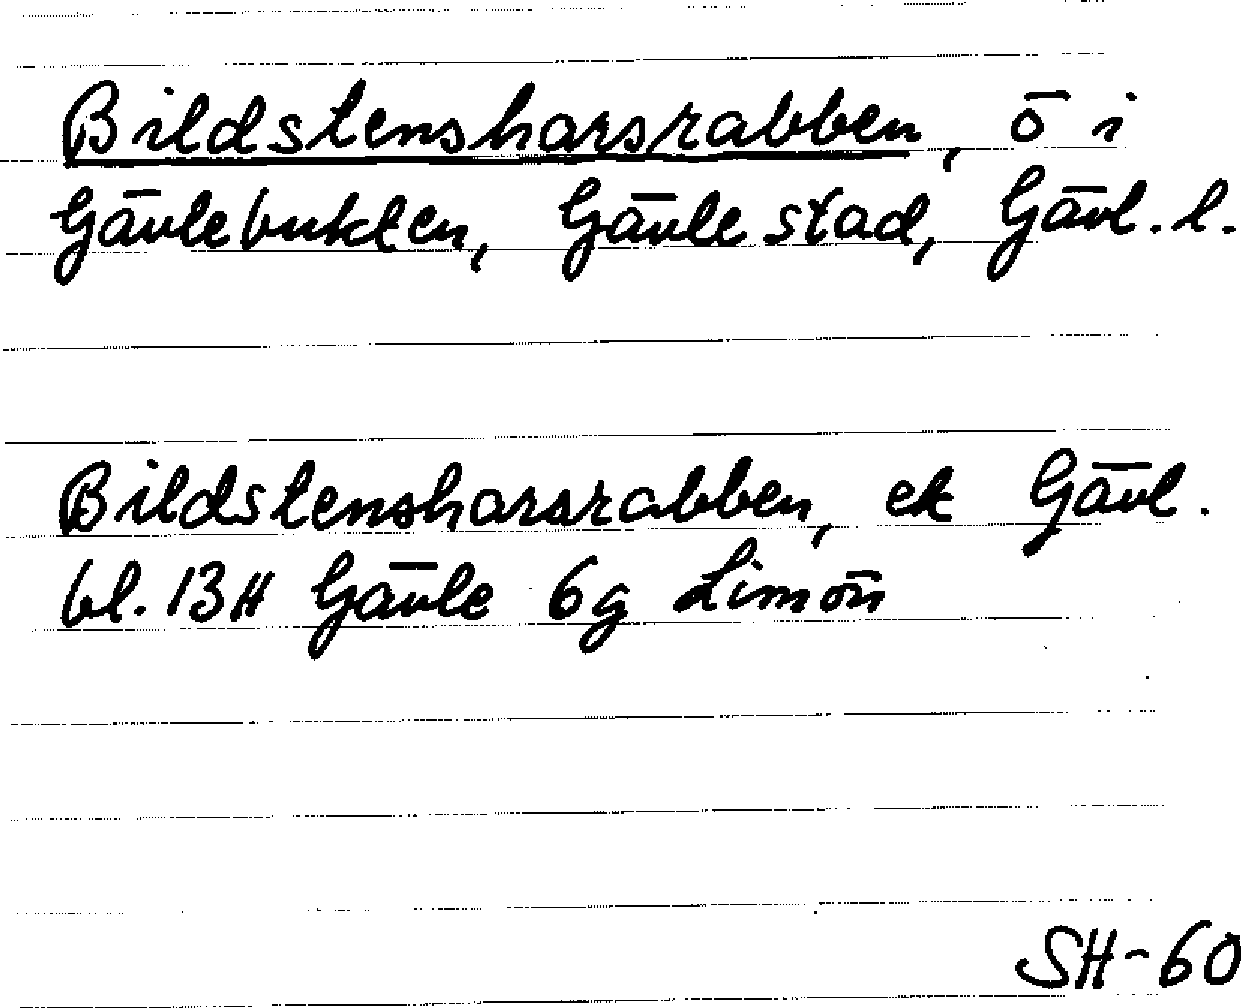 Bildstensharsrabben, ö i
Gävlebukten, Gävle stad, Gävl. l.
Bildstensharsrabben, ek Gävl.
bl. 13H Gävle 6g Limön
SH-60